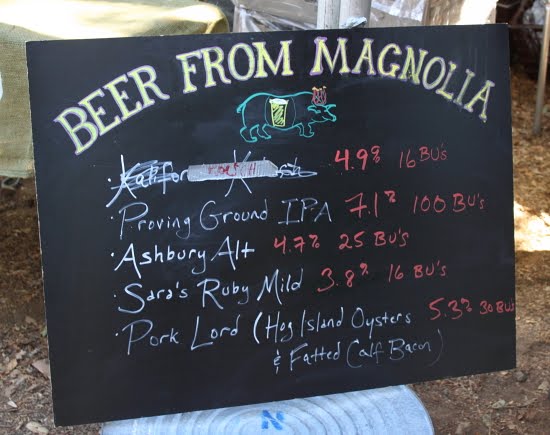 BEER FROM MAGNOLIA
· Kalifor K sh 4.9% 16 BU's
· Proving Ground IPA 7.1% 100 BU's
· Ashbury Alt 4.7% 25 BU's
· Sara's Ruby Mild 3.8% 16 BU's
· Pork Lord (Hog Island Oysters 5.3% 30 BU's
& Fatted Calf Bacon)